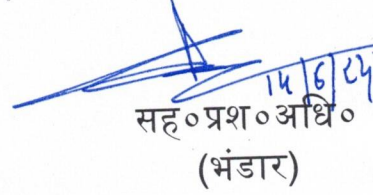 14/6/24
सह०प्रश०अधि०
(भंडार)